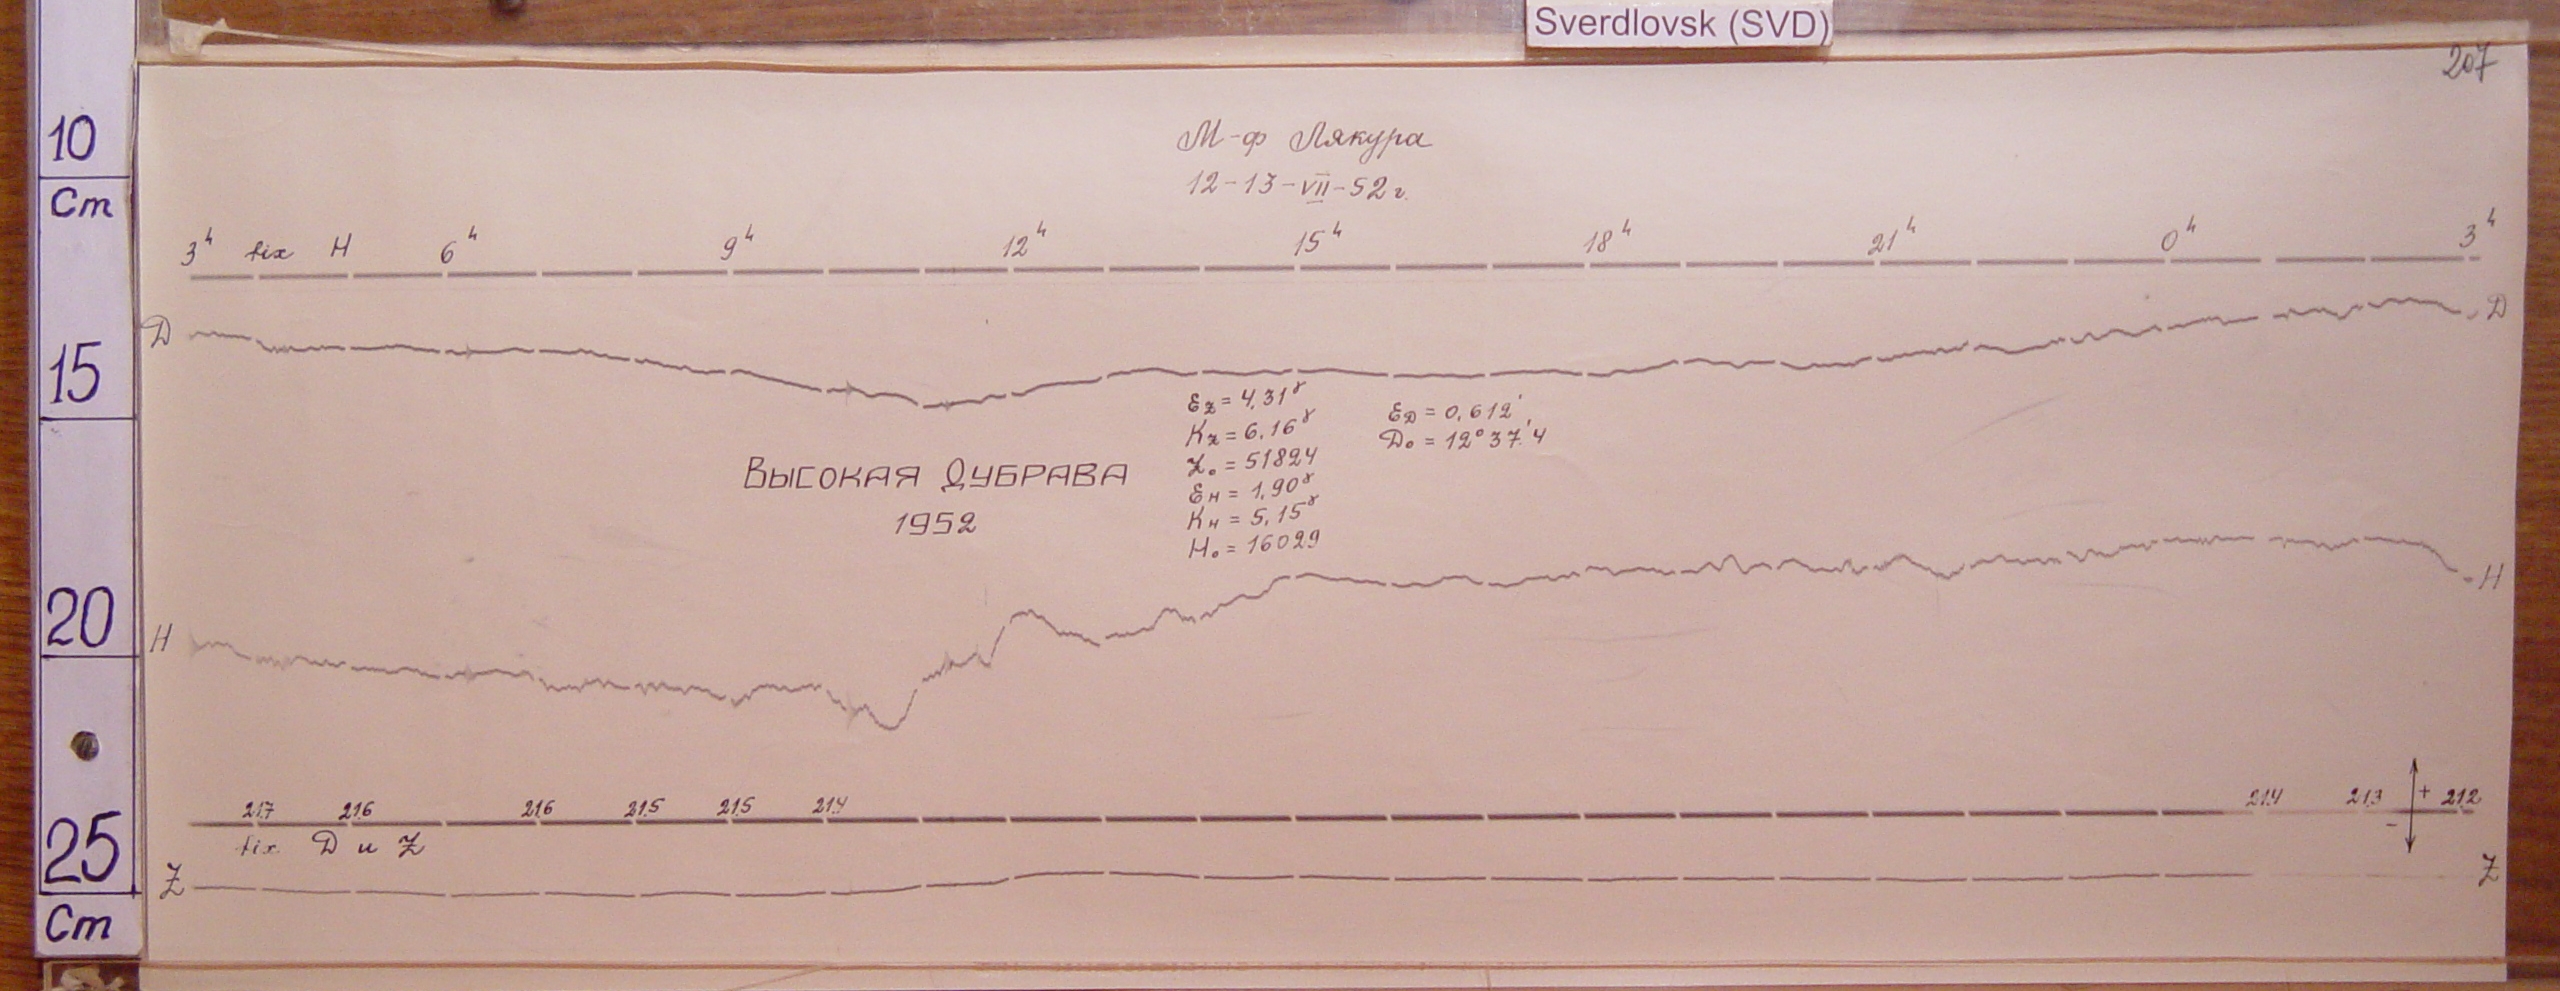 Sverdlovsk (SVD)
207
10
Cm
15
20
25
Cm
М-ф Лякура
12-13-VII-52 г.
3ʰ fix H 6ʰ 9ʰ 12ʰ 15ʰ 18ʰ 21ʰ 0ʰ 3ʰ
D D
Ez = 4,31ᵞ
Kz = 6,16ᵞ
Z₀ = 51824
Eн = 1,90ᵞ
Kн = 5,15ᵞ
H₀ = 16029
ED = 0,612'
D₀ = 12°37'4
ВЫСОКАЯ ДУБРАВА
1952
H H
21,7 21,6 21,6 21,5 21,5 21,4 21,4 21,3 + 21,2
-
fix D и Z
Z Z